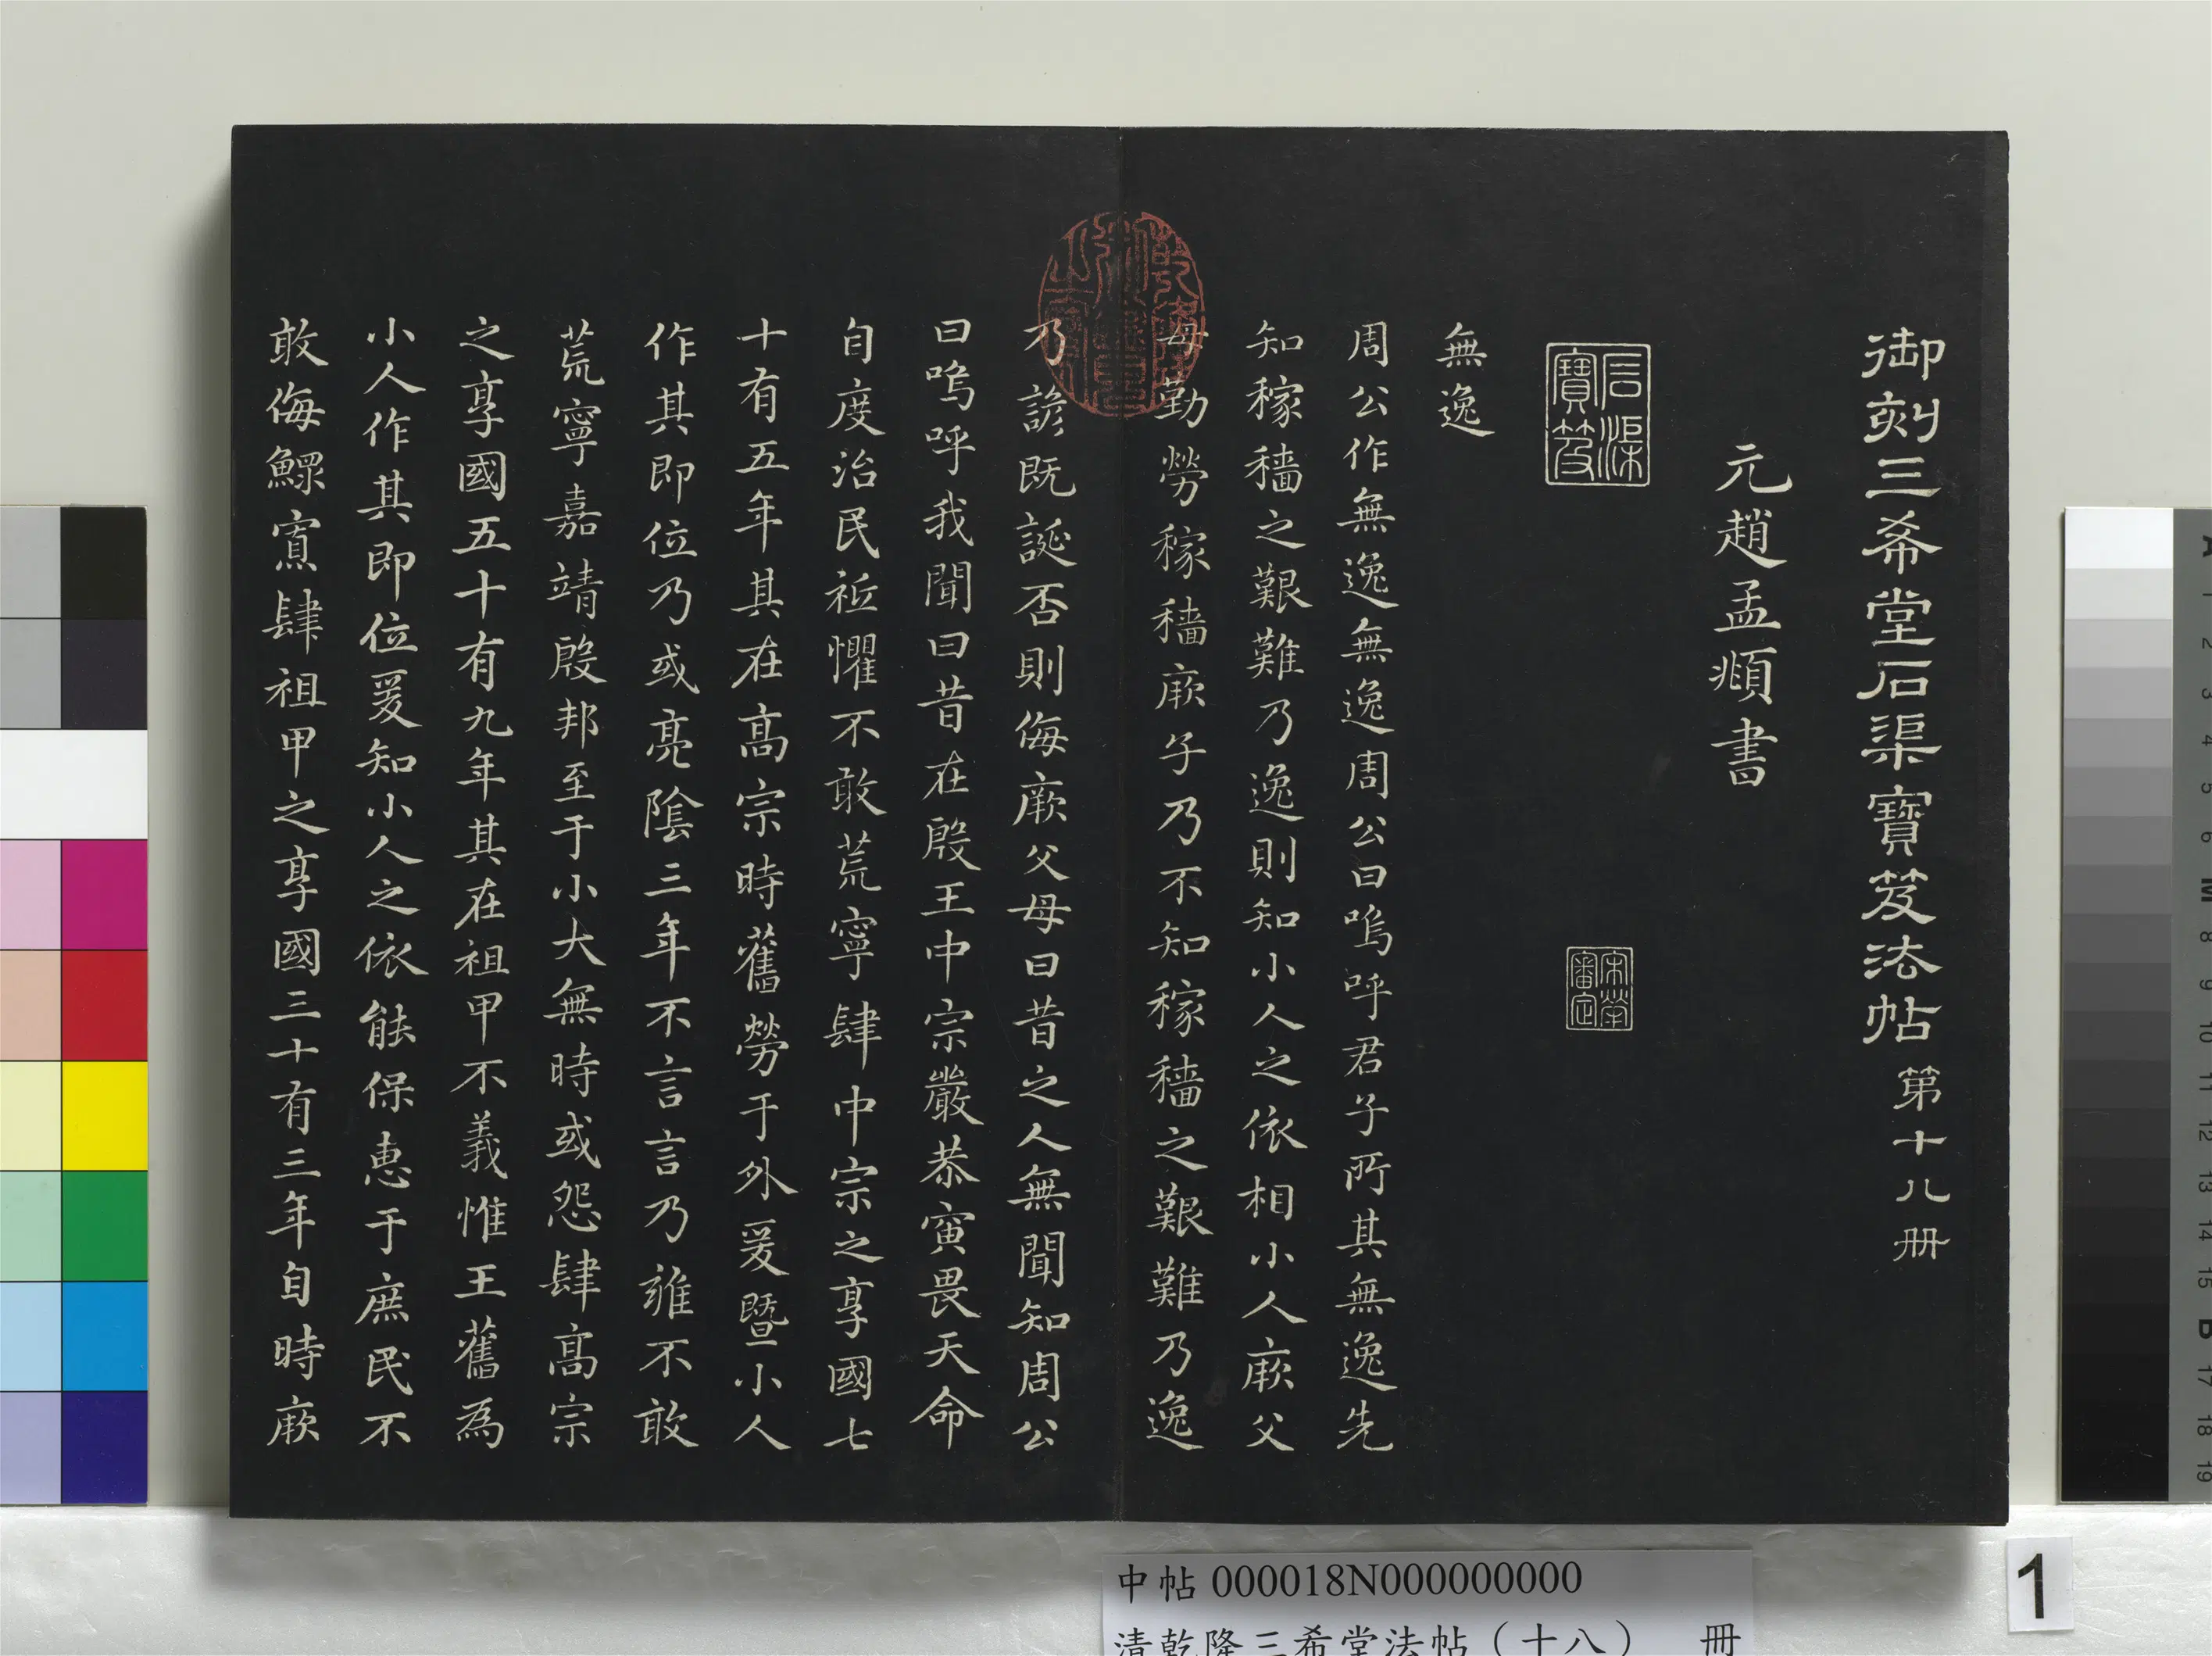 御刻三希堂石渠寶笈法帖第十八册
元趙孟頫書
石渠
寶笈
宋犖
審定
無逸
周公作無逸無逸周公曰嗚呼君子所其無逸先
知稼穡之艱難乃逸則知小人之依相小人厥父
母勤勞稼穡厥子乃不知稼穡之艱難乃逸
乃諺既誕否則侮厥父母曰昔之人無聞知周公
曰嗚呼我聞曰昔在殷王中宗嚴恭寅畏天命
自度治民祗懼不敢荒寧肆中宗之享國七
十有五年其在高宗時舊勞于外爰暨小人
作其即位乃或亮陰三年不言言乃雍不敢
荒寧嘉靖殷邦至于小大無時或怨肆高宗
之享國五十有九年其在祖甲不義惟王舊為
小人作其即位爰知小人之依能保惠于庶民不
敢侮鰥寡肆祖甲之享國三十有三年自時厥
中帖 000018N000000000
清乾隆三希堂法帖（十八） 冊
1
A
1
2
3
4
5
6
M
8
9
10
11
12
13
14
15
B
17
18
19